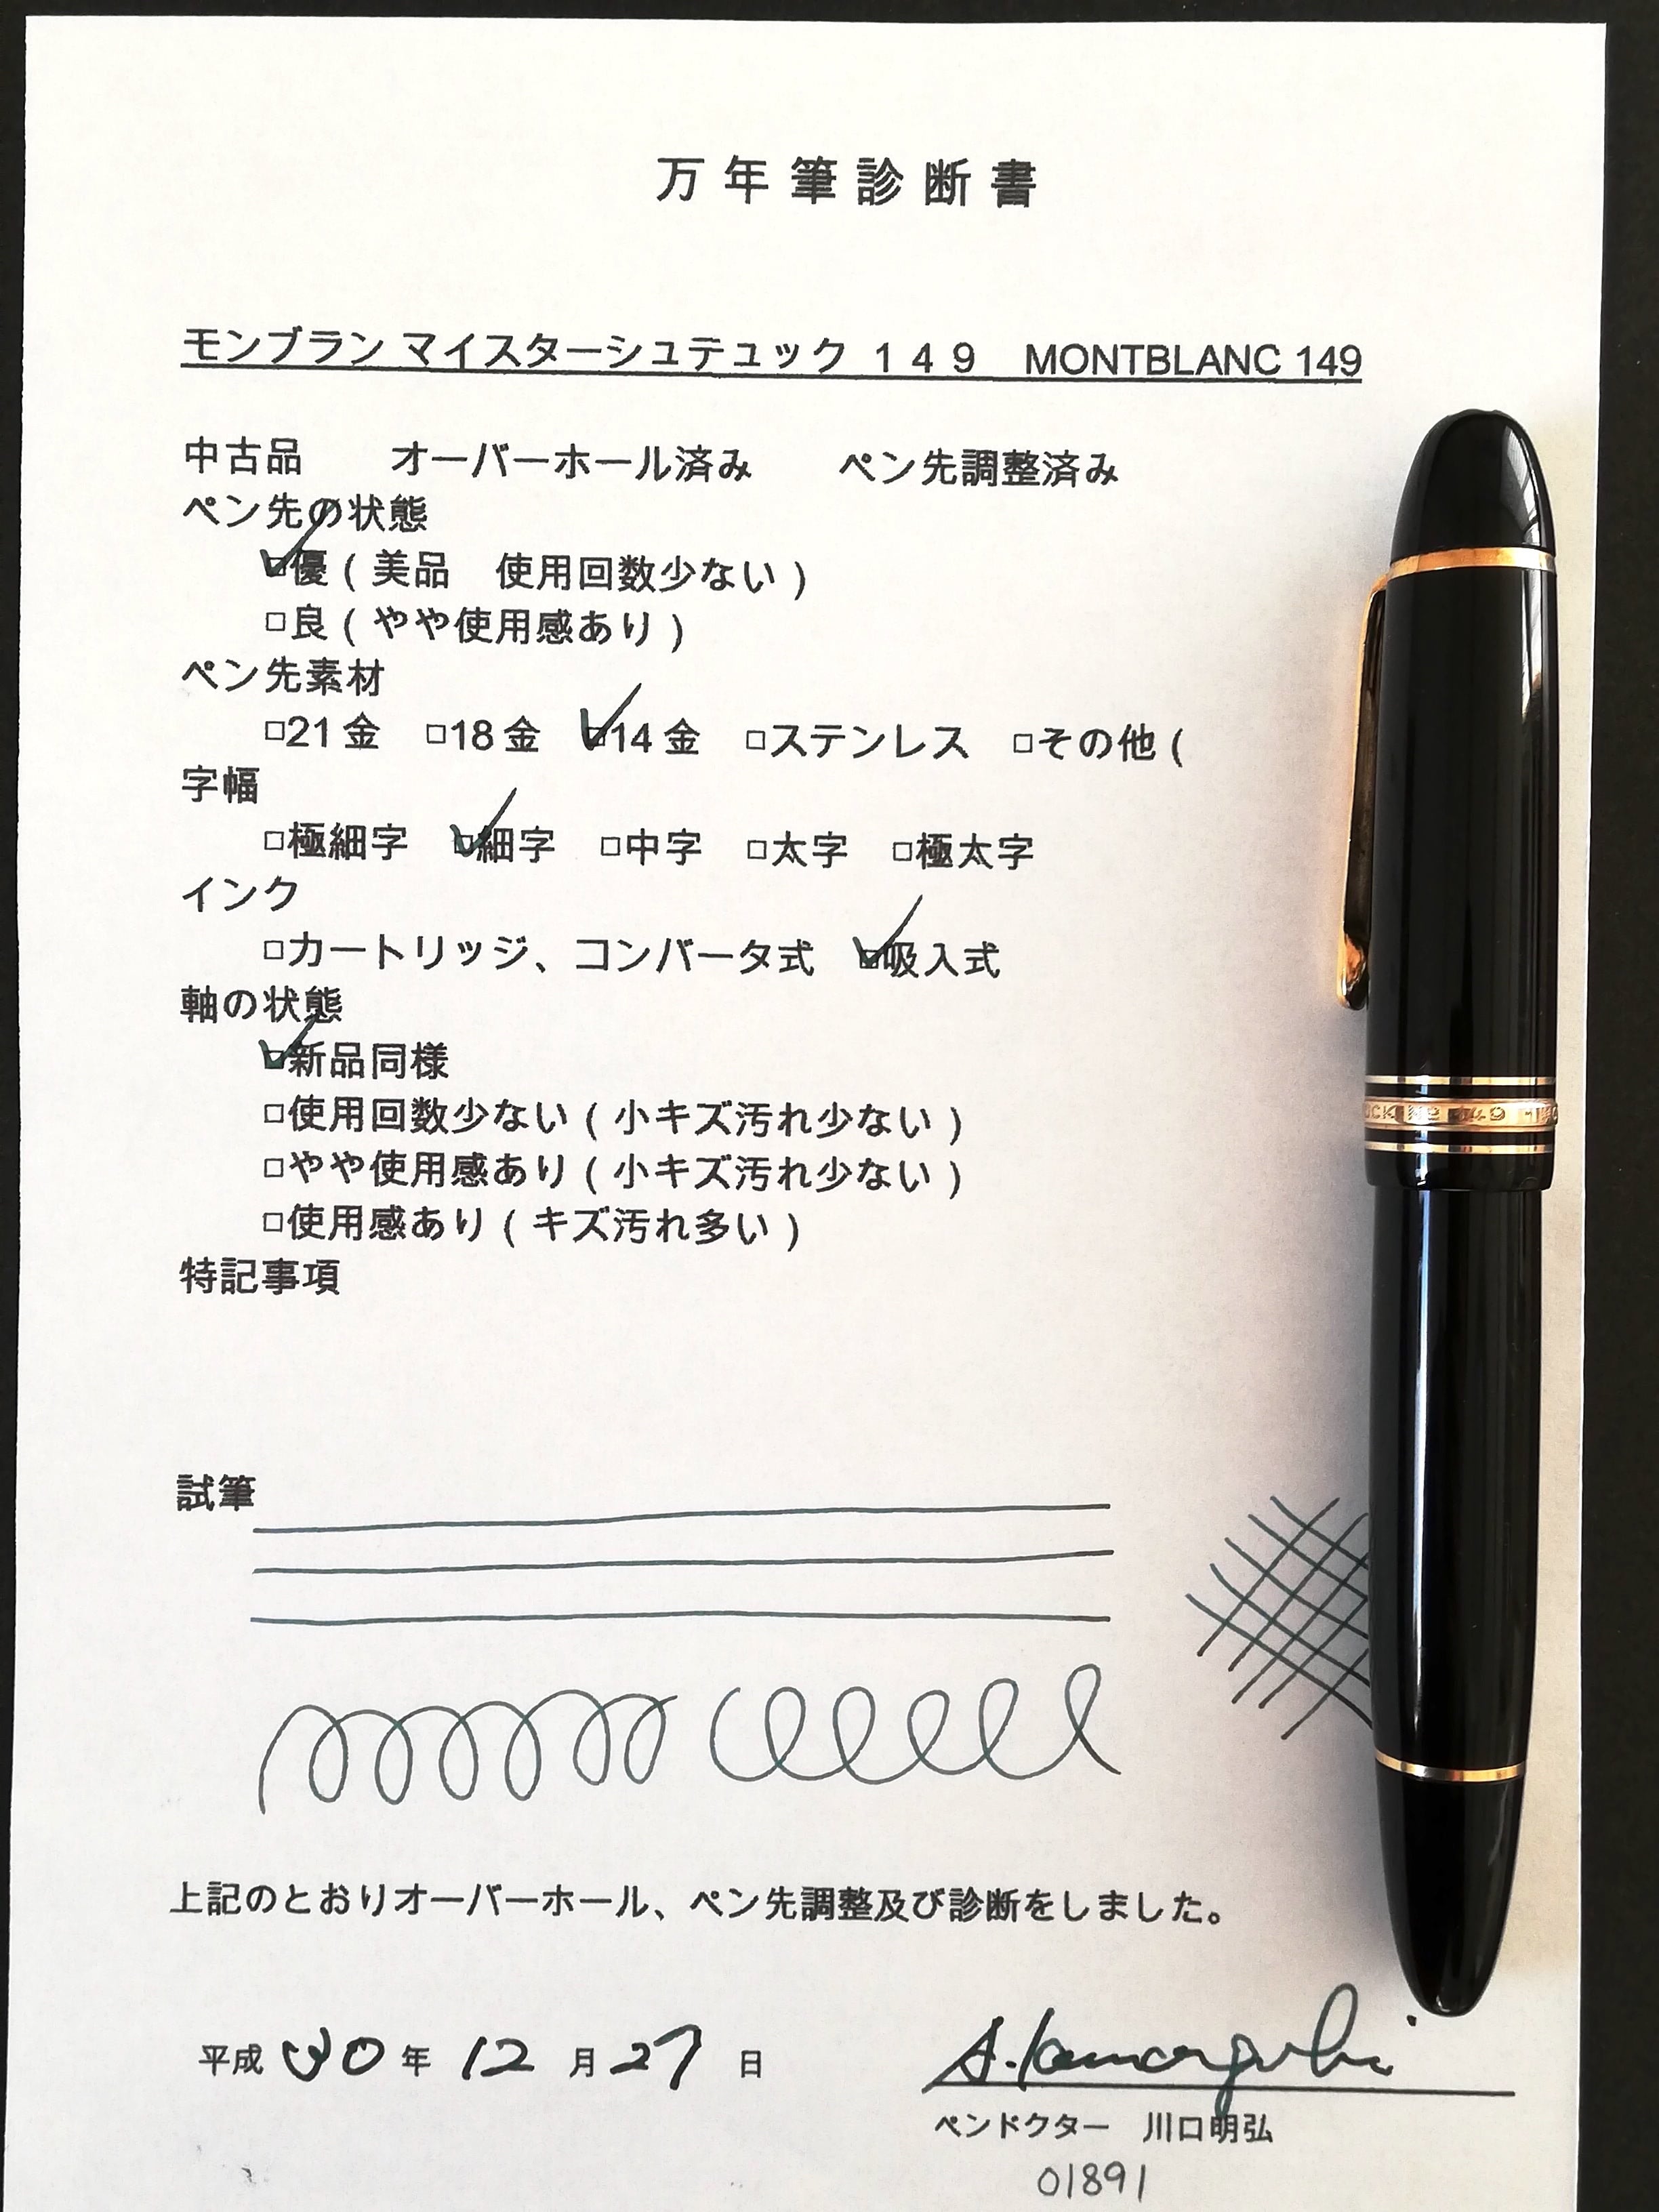 万年筆診断書
モンブラン マイスターシュテュック １４９　MONTBLANC 149
中古品　オーバーホール済み　ペン先調整済み
ペン先の状態
☑優（美品　使用回数少ない）
□良（やや使用感あり）
ペン先素材
□21金　□18金　☑14金　□ステンレス　□その他（
字幅
□極細字　☑細字　□中字　□太字　□極太字
インク
□カートリッジ、コンバータ式　☑吸入式
軸の状態
☑新品同様
□使用回数少ない（小キズ汚れ少ない）
□やや使用感あり（小キズ汚れ少ない）
□使用感あり（キズ汚れ多い）
特記事項
試筆
上記のとおりオーバーホール、ペン先調整及び診断をしました。
平成 30 年 12 月 27 日
ペンドクター　川口明弘
01891